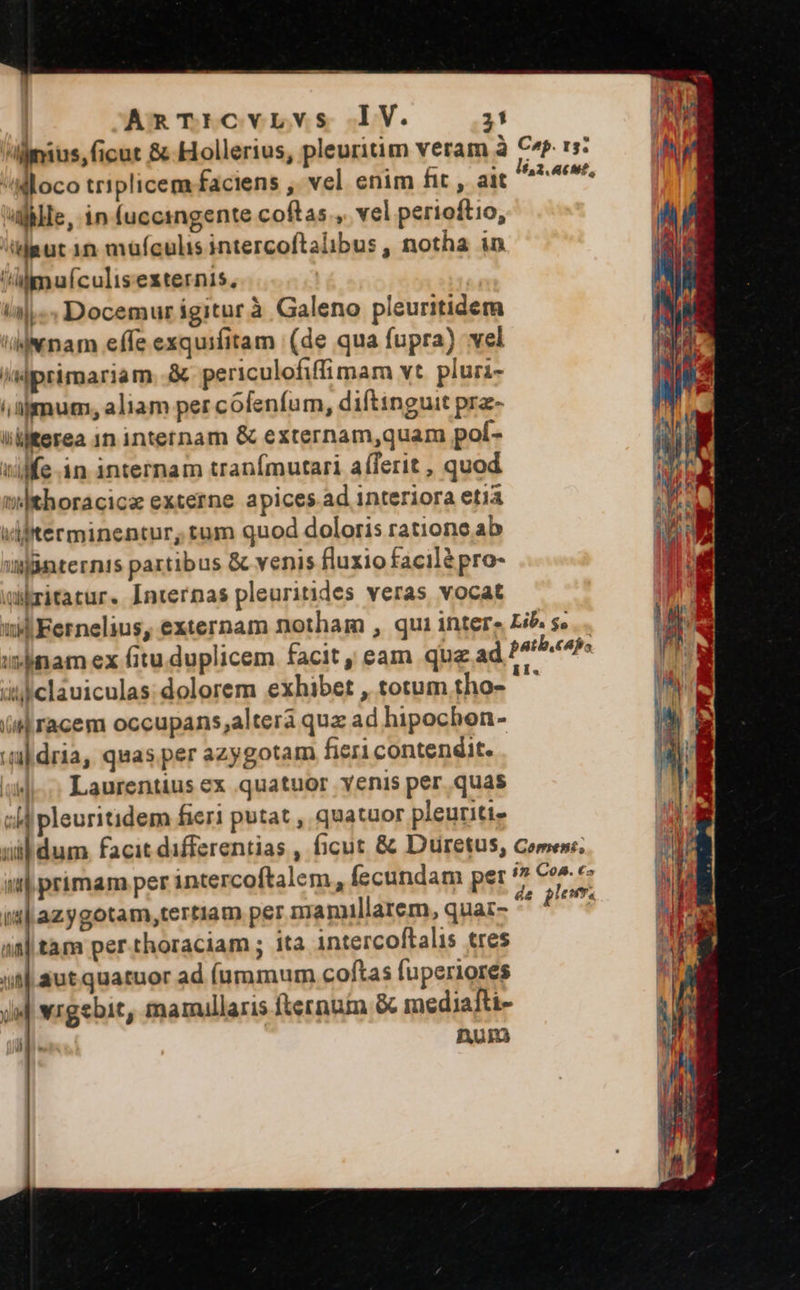 ARTICVLVS IV. 31
nius, ſicut & Hollerius, pleuritim veram à Cap. 13:
loco triplicem faciens, vel enim fit, ait
ille, in ſuccingente coſtas, vel perioſtio,
aut in muſculis intercoſtalibus, notha in
muſculis externis.
Docemur igitur à Galeno pleuritidem
vnam eſſe exquiſitam (de qua ſupra) vel
primariam & periculoſiſſimam vt pluri-
mum, aliam per cōſenſum, diſtinguit præ-
terea in internam & externam, quam poſ-
ſe in internam tranſmutari aſſerit, quod
thoracicæ externe apices ad interiora etiā
terminentur, tum quod doloris ratione ab
internis partibus & venis fluxio facilè pro-
ritatur. Internas pleuritides veras vocat
Fernelius, externam notham, qui inter- Lib. 5.
nam ex ſitu duplicem facit, eam quæ ad path. cap.
clauiculas dolorem exhibet, totum tho- 11.
racem occupans, alterā quæ ad hipochon-
dria, quas per azygotam fieri contendit.
Laurentius ex quatuor venis per quas
pleuritidem fieri putat, quatuor pleuriti-
dum facit differentias, ſicut & Duretus, Coment.
primam per intercoſtalem, ſecundam per in Coa. c.
azygotam, tertiam per mamillarem, quar- de pleur.
tam per thoraciam; ita intercoſtalis tres
aut quatuor ad ſummum coſtas ſuperiores
vrgebit, mamillaris ſternum & mediaſti-
num